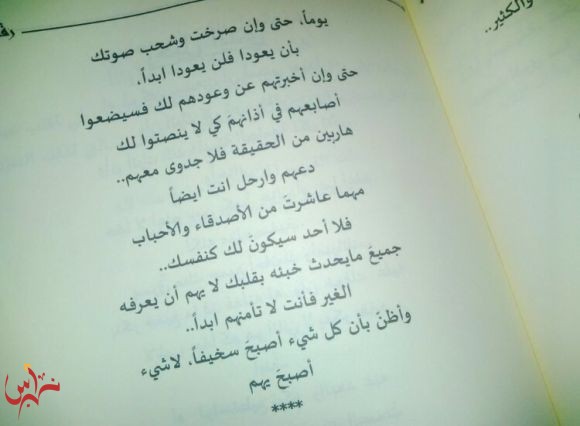 والكثير..
يوماً، حتى وإن صرخت وشحب صوتك
بأن يعودا فلن يعودا ابداً.
حتى وإن أخبرتهم عن وعودهم لك فسيضعوا
أصابعهم في أذانهمَ كي لا ينصتوا لك
هاربين من الحقيقة فلا جدوى معهم..
دعهم وارحل انت ايضاً
مهما عاشرتَ من الأصدقاء والأحباب
فلا أحد سيكونَ لك كنفسك..
جميعَ مايحدث خبئه بقلبك لا يهم أن يعرفه
الغير فأنت لا تأمنهم ابداً..
وأظنّ بأن كل شيء أصبحَ سخيفاً، لاشيء
أصبحَ يهم
****